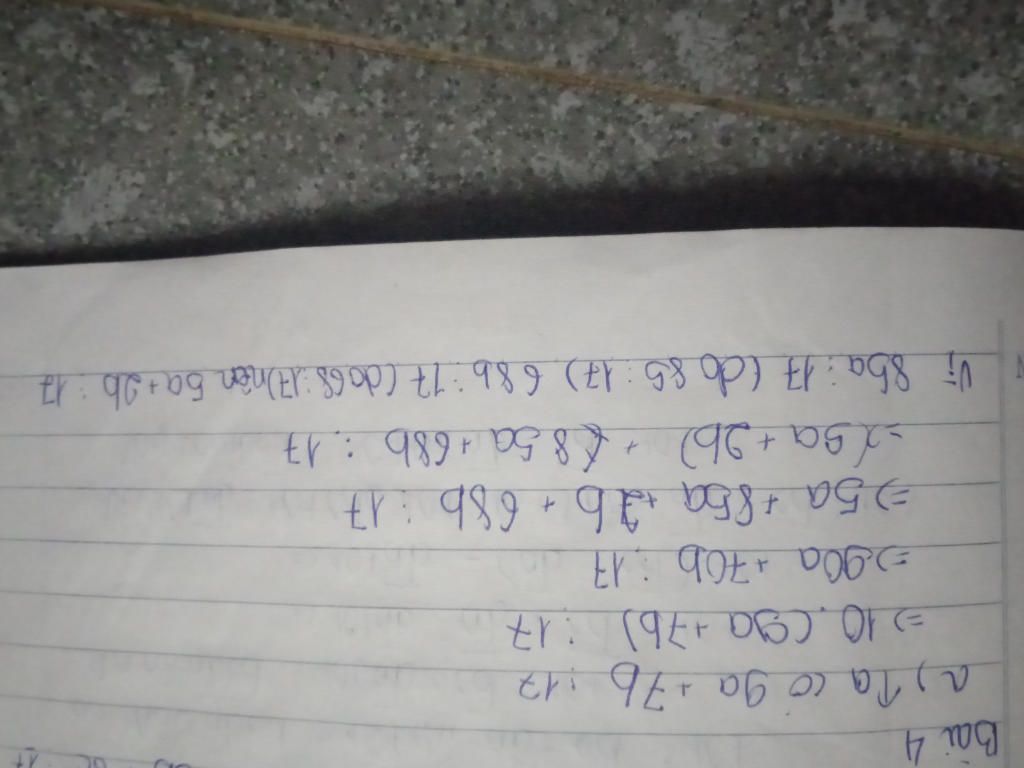 Bài 4
a, Ta có 9a + 7b ⋮ 17
=> 10. (9a + 7b) ⋮ 17
=> 90a + 70b ⋮ 17
=> 5a + 85a + 2b + 68b ⋮ 17
=> (5a + 2b) + (85a + 68b ⋮ 17
Vì 85a ⋮ 17 (do 85 ⋮ 17) 68b ⋮ 17 (do 68 ⋮ 17) nên 5a + 2b ⋮ 17